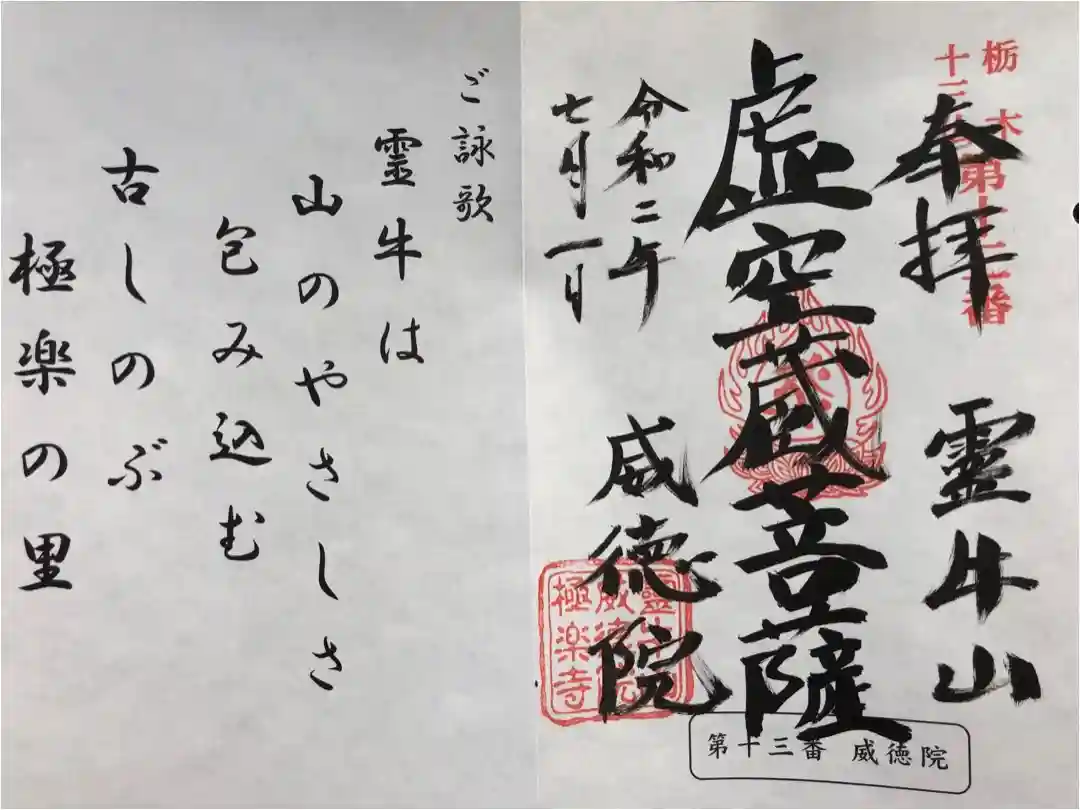 栃木
第十三番
奉拝 霊牛山
虚空蔵菩薩
令和二年
七月一日
威徳院
靈牛山
威徳院
極楽寺
第十三番 威徳院
ご詠歌
霊牛は
山のやさしさ
包み込む
古しのぶ
極楽の里